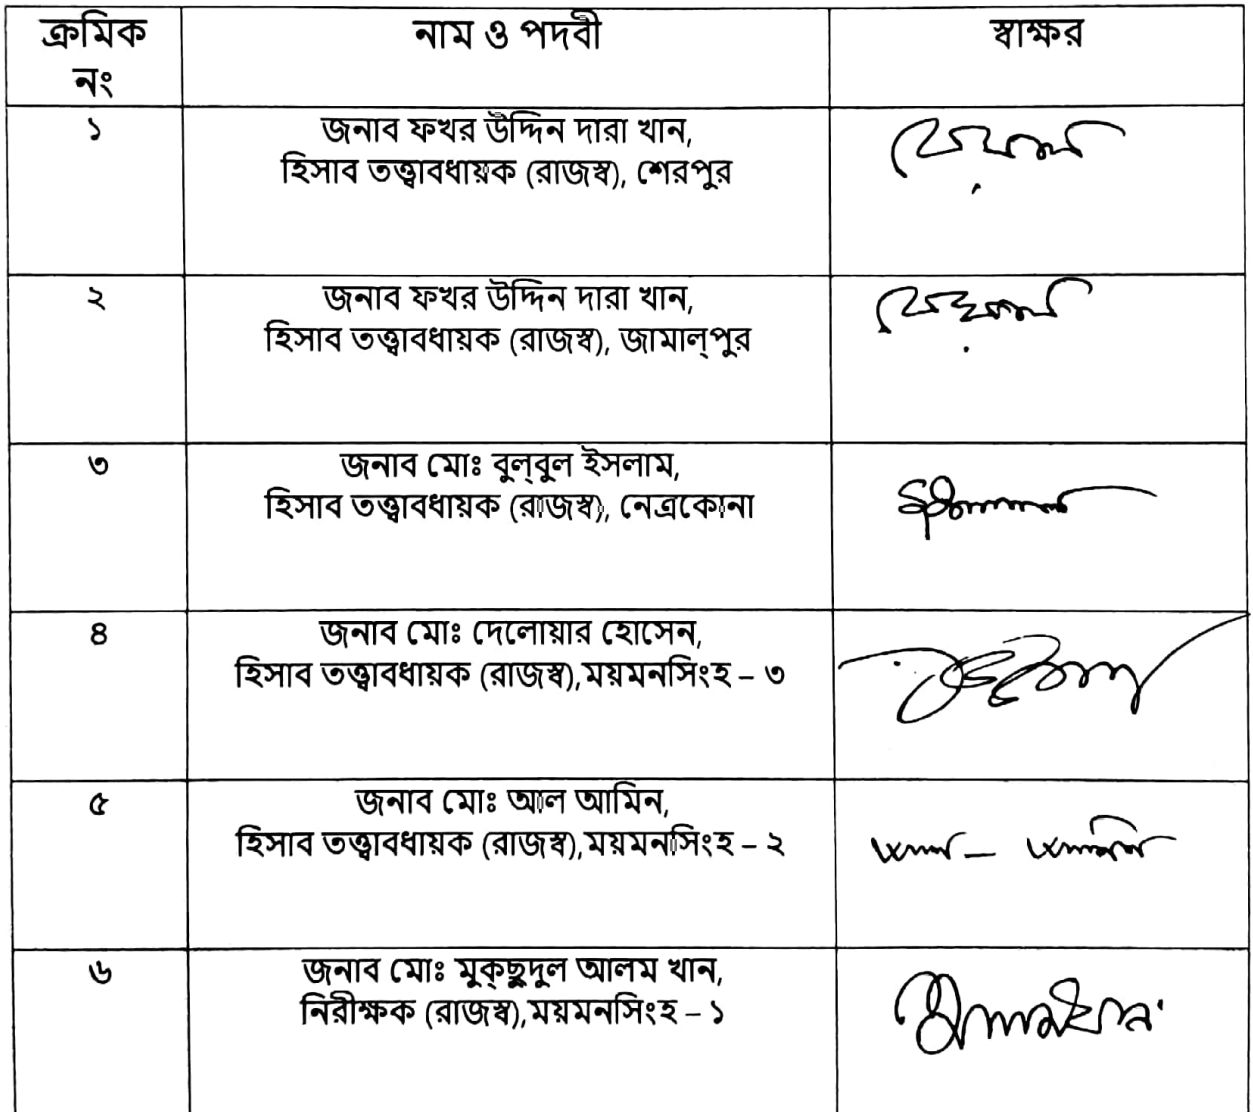 ক্রমিক নাম ও পদবী স্বাক্ষর
নং
১ জনাব ফখর উদ্দিন দারা খান,
হিসাব তত্ত্বাবধায়ক (রাজস্ব), শেরপুর
২ জনাব ফখর উদ্দিন দারা খান,
হিসাব তত্ত্বাবধায়ক (রাজস্ব), জামাল্পুর
৩ জনাব মোঃ বুল্বুল ইসলাম,
হিসাব তত্ত্বাবধায়ক (রাজস্ব), নেত্রকোনা
৪ জনাব মোঃ দেলোয়ার হোসেন,
হিসাব তত্ত্বাবধায়ক (রাজস্ব),ময়মনসিংহ – ৩
৫ জনাব মোঃ আল আমিন,
হিসাব তত্ত্বাবধায়ক (রাজস্ব),ময়মনসিংহ – ২
৬ জনাব মোঃ মুক্ছুদুল আলম খান,
নিরীক্ষক (রাজস্ব),ময়মনসিংহ – ১